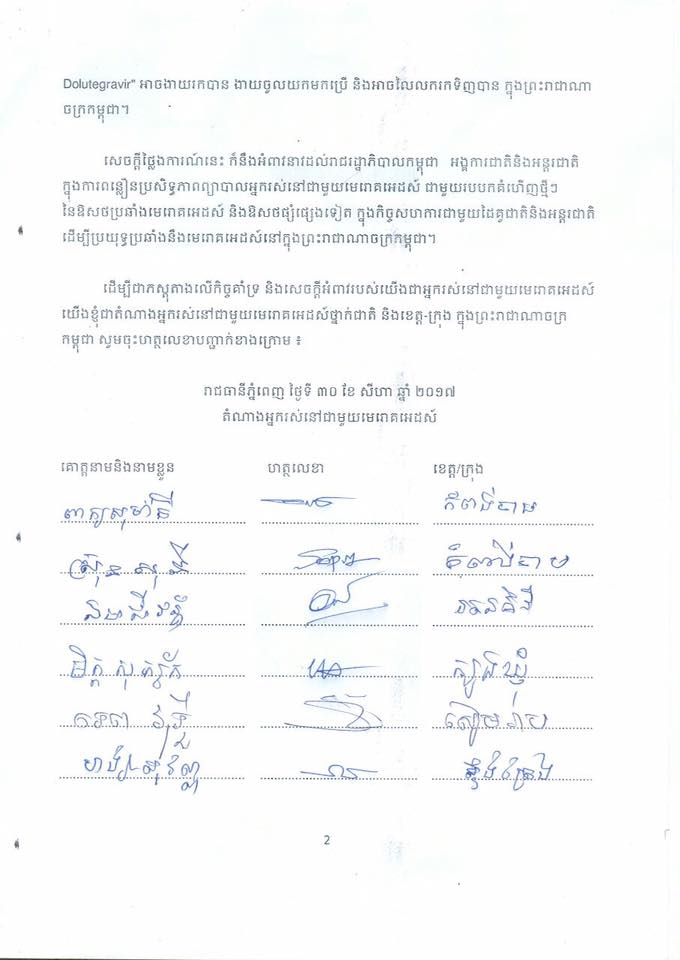 Dolutegravir" អាចងាយរកបាន ងាយចូលយកមកប្រើ និងអាចលៃលករកទិញបាន ក្នុងព្រះរាជាណា
ចក្រកម្ពុជា។
សេចក្តីថ្លែងការណ៍នេះ ក៏នឹងអំពាវនាវដល់រាជរដ្ឋាភិបាលកម្ពុជា អង្គការជាតិនិងអន្តរជាតិ
ក្នុងការពន្លឿនប្រសិទ្ធភាពព្យាបាលអ្នករស់នៅជាមួយមេរោគអេដស៍ ជាមួយរបបកគំហើញថ្មីៗ
នៃឱសថប្រឆាំងមេរោគអេដស៍ និងឱសថផ្សំផ្សេងទៀត ក្នុងកិច្ចសហការជាមួយដៃគូជាតិនិងអន្តរជាតិ
ដើម្បីប្រយុទ្ធប្រឆាំងនឹងមេរោគអេដស៍នៅក្នុងព្រះរាជាណាចក្រកម្ពុជា។
ដើម្បីជាភស្តុតាងលើកិច្ចគាំទ្រ និងសេចក្តីអំពាវរបស់យើងជាអ្នករស់នៅជាមួយមេរោគអេដស៍
យើងខ្ញុំជាតំណាងអ្នករស់នៅជាមួយមេរោគអេដស៍ថ្នាក់ជាតិ និងខេត្ត-ក្រុង ក្នុងព្រះរាជាណាចក្រ
កម្ពុជា សូមចុះហត្ថលេខាបញ្ជាក់ខាងក្រោម ៖
រាជធានីភ្នំពេញ ថ្ងៃទី ៣០ ខែ សីហា ឆ្នាំ ២០១៧
តំណាងអ្នករស់នៅជាមួយមេរោគអេដស៍
គោត្តនាមនិងនាមខ្លួន ហត្ថលេខា ខេត្ត/ក្រុង
កំពង់ចាម
កំពង់ចាម
ត្បូងឃ្មុំ
សៀមរាប
ស្ទឹងត្រែង
2